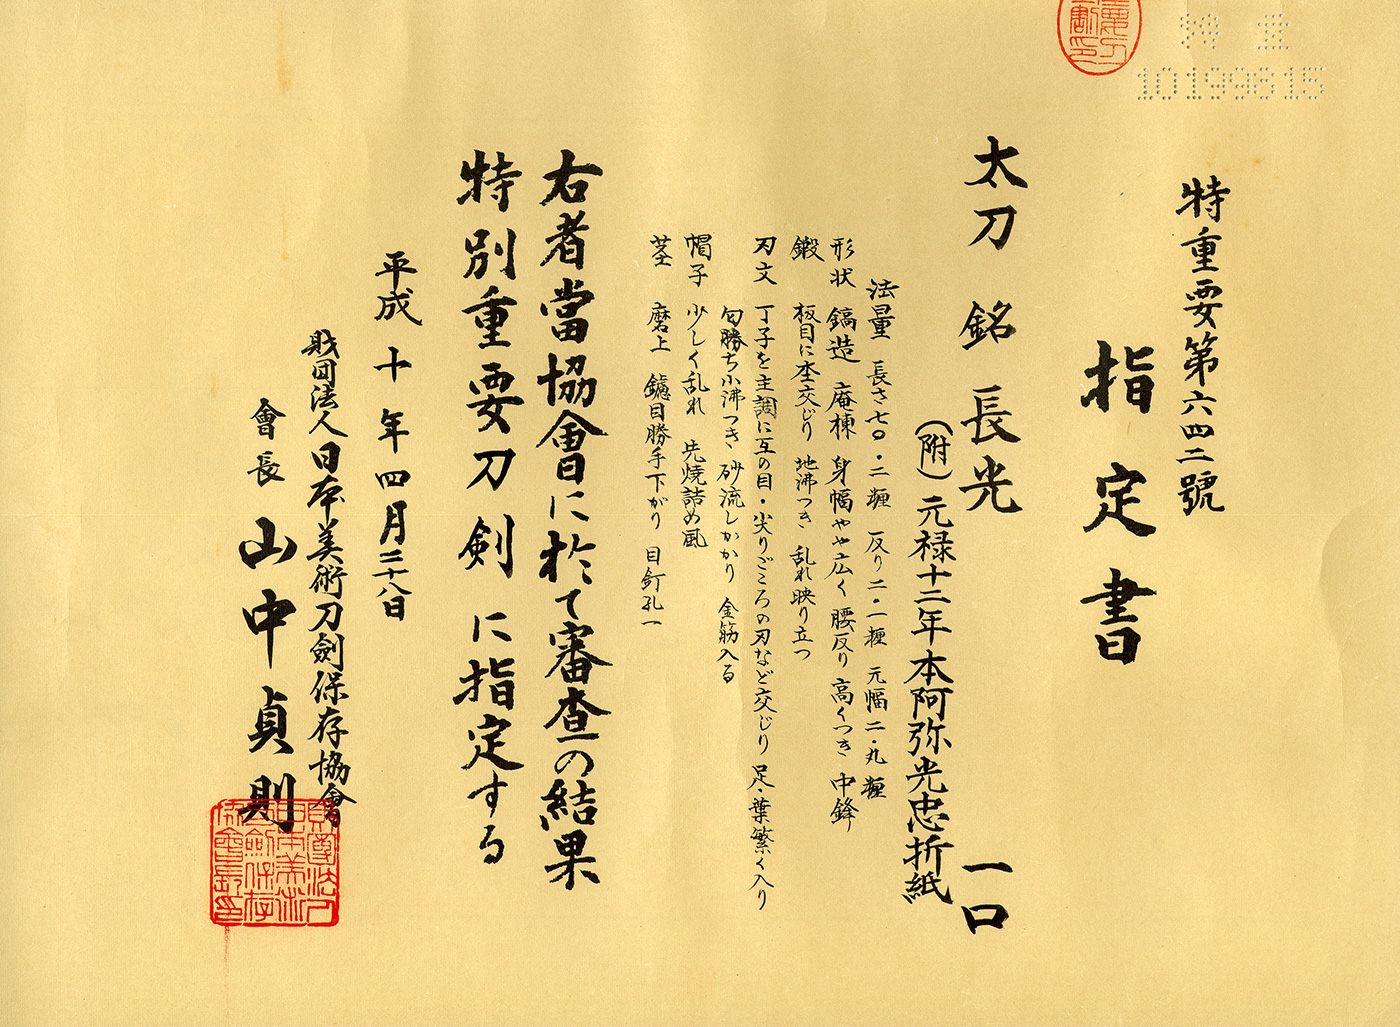 特重
10199815
特重要第六四二號
指定書
太刀 銘 長光 一口
(附) 元禄十二年本阿弥光忠折紙
法量 長さ七〇・二糎 反り二・一糎 元幅二・九糎
形状 鎬造 庵棟 身幅やや広く 腰反り高くつき 中鋒
鍛 板目に杢交じり 地沸つき 乱れ映り立つ
刃文 丁子を主調に互の目・尖りごころの刃など交じり 足・葉繁く入り
匂勝ち小沸つき 砂流しかかり 金筋入る
帽子 少しく乱れ 先焼詰め風
茎 磨上 鑢目勝手下がり 目釘孔一
右者當協會に於て審査の結果
特別重要刀剣に指定する
平成十年四月二十八日
財団法人日本美術刀劍保存協會
會長 山中貞則